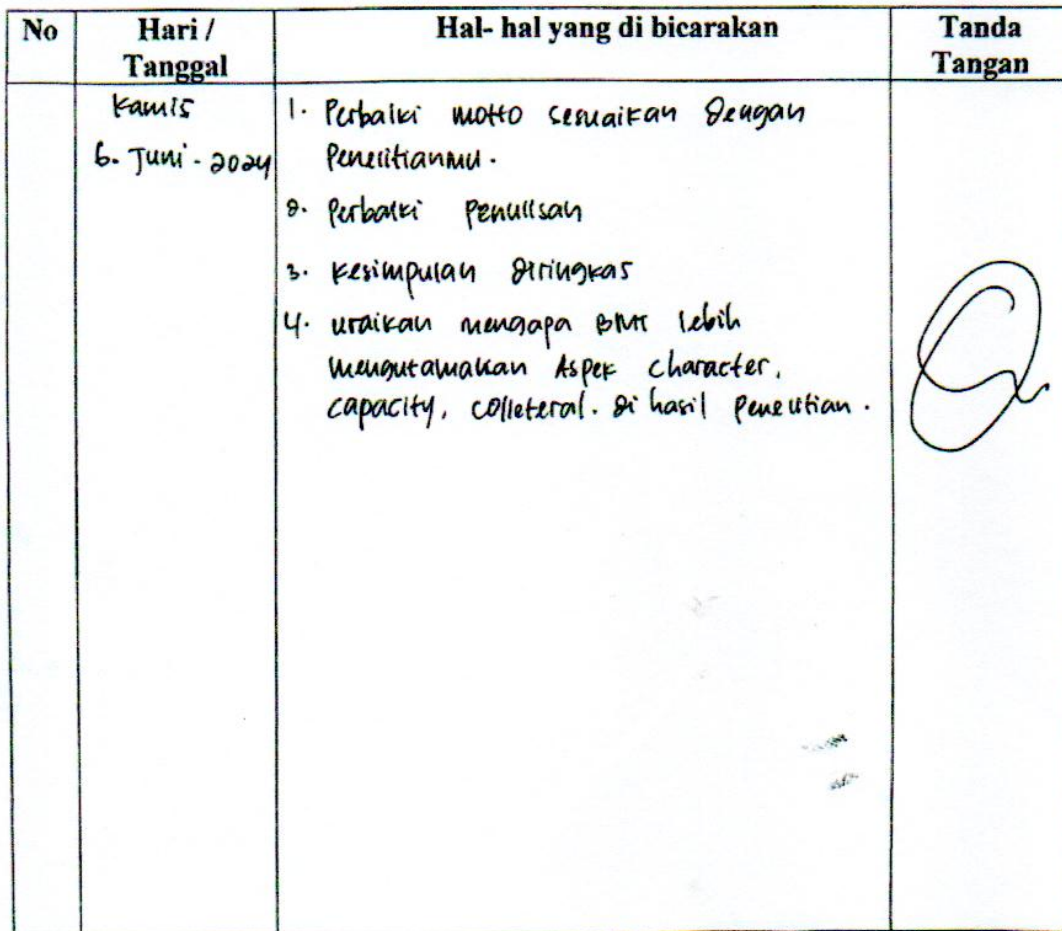 No
Hari /
Tanggal
Hal- hal yang di bicarakan
Tanda
Tangan
Kamis
6. Juni - 2024
1. Perbaiki motto sesuaikan dengan
Penelitianmu.
2. Perbaiki penulisan
3. Kesimpulan diringkas
4. uraikan mengapa BMT lebih
mengutamakan Aspek character,
capacity, colleteral. di hasil penelitian.